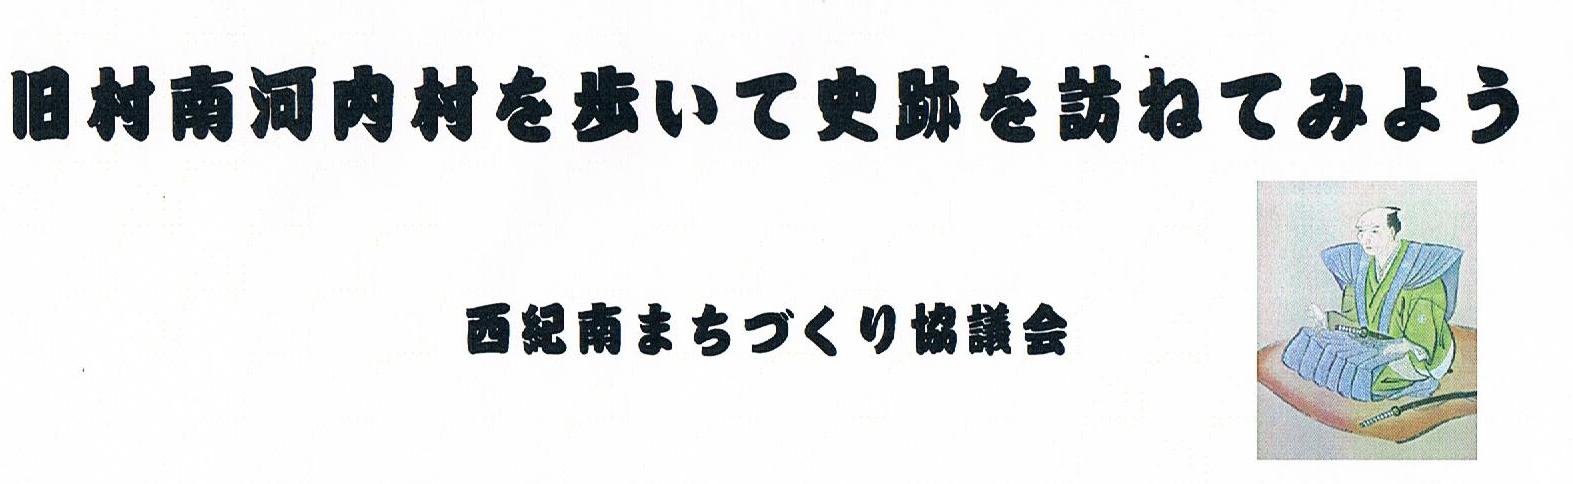 旧村南河内村を歩いて史跡を訪ねてみよう
西紀南まちづくり協議会